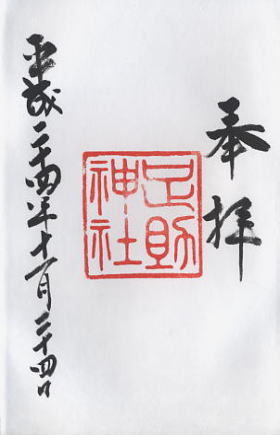 奉拝
足助神社
平成二十四年十一月二十四日